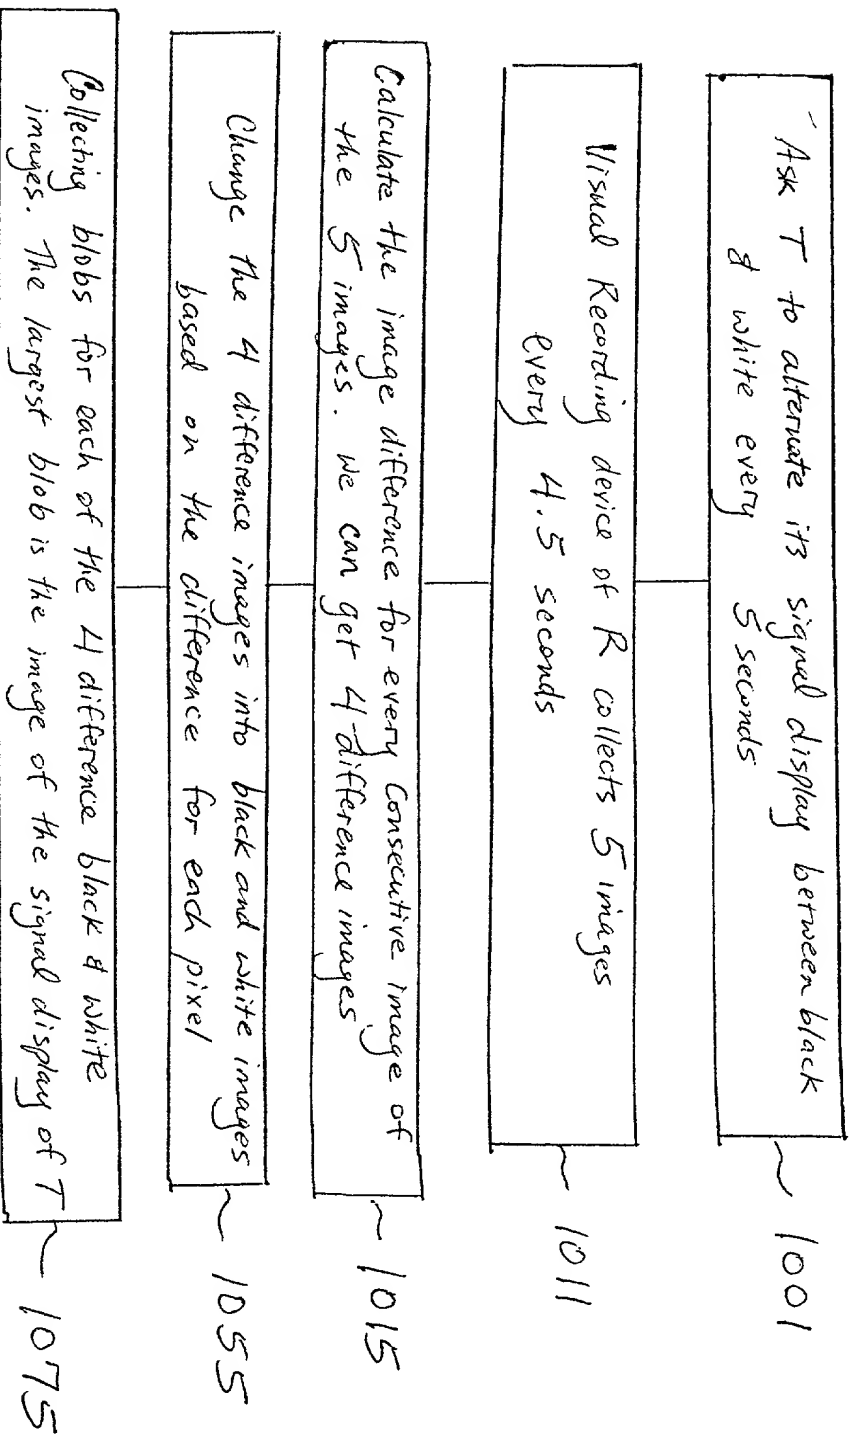 Ask T to alternate its signal display between black
& white every 5 seconds
~ 1001
Visual Recording device of R collects 5 images
every 4.5 seconds
~ 1011
Calculate the image difference for every Consecutive image of
the 5 images. We can get 4 difference images
~ 1015
Change the 4 difference images into black and white images
based on the difference for each pixel
~ 1055
Collecting blobs for each of the 4 difference black & white
images. The largest blob is the image of the signal display of T
~ 1075